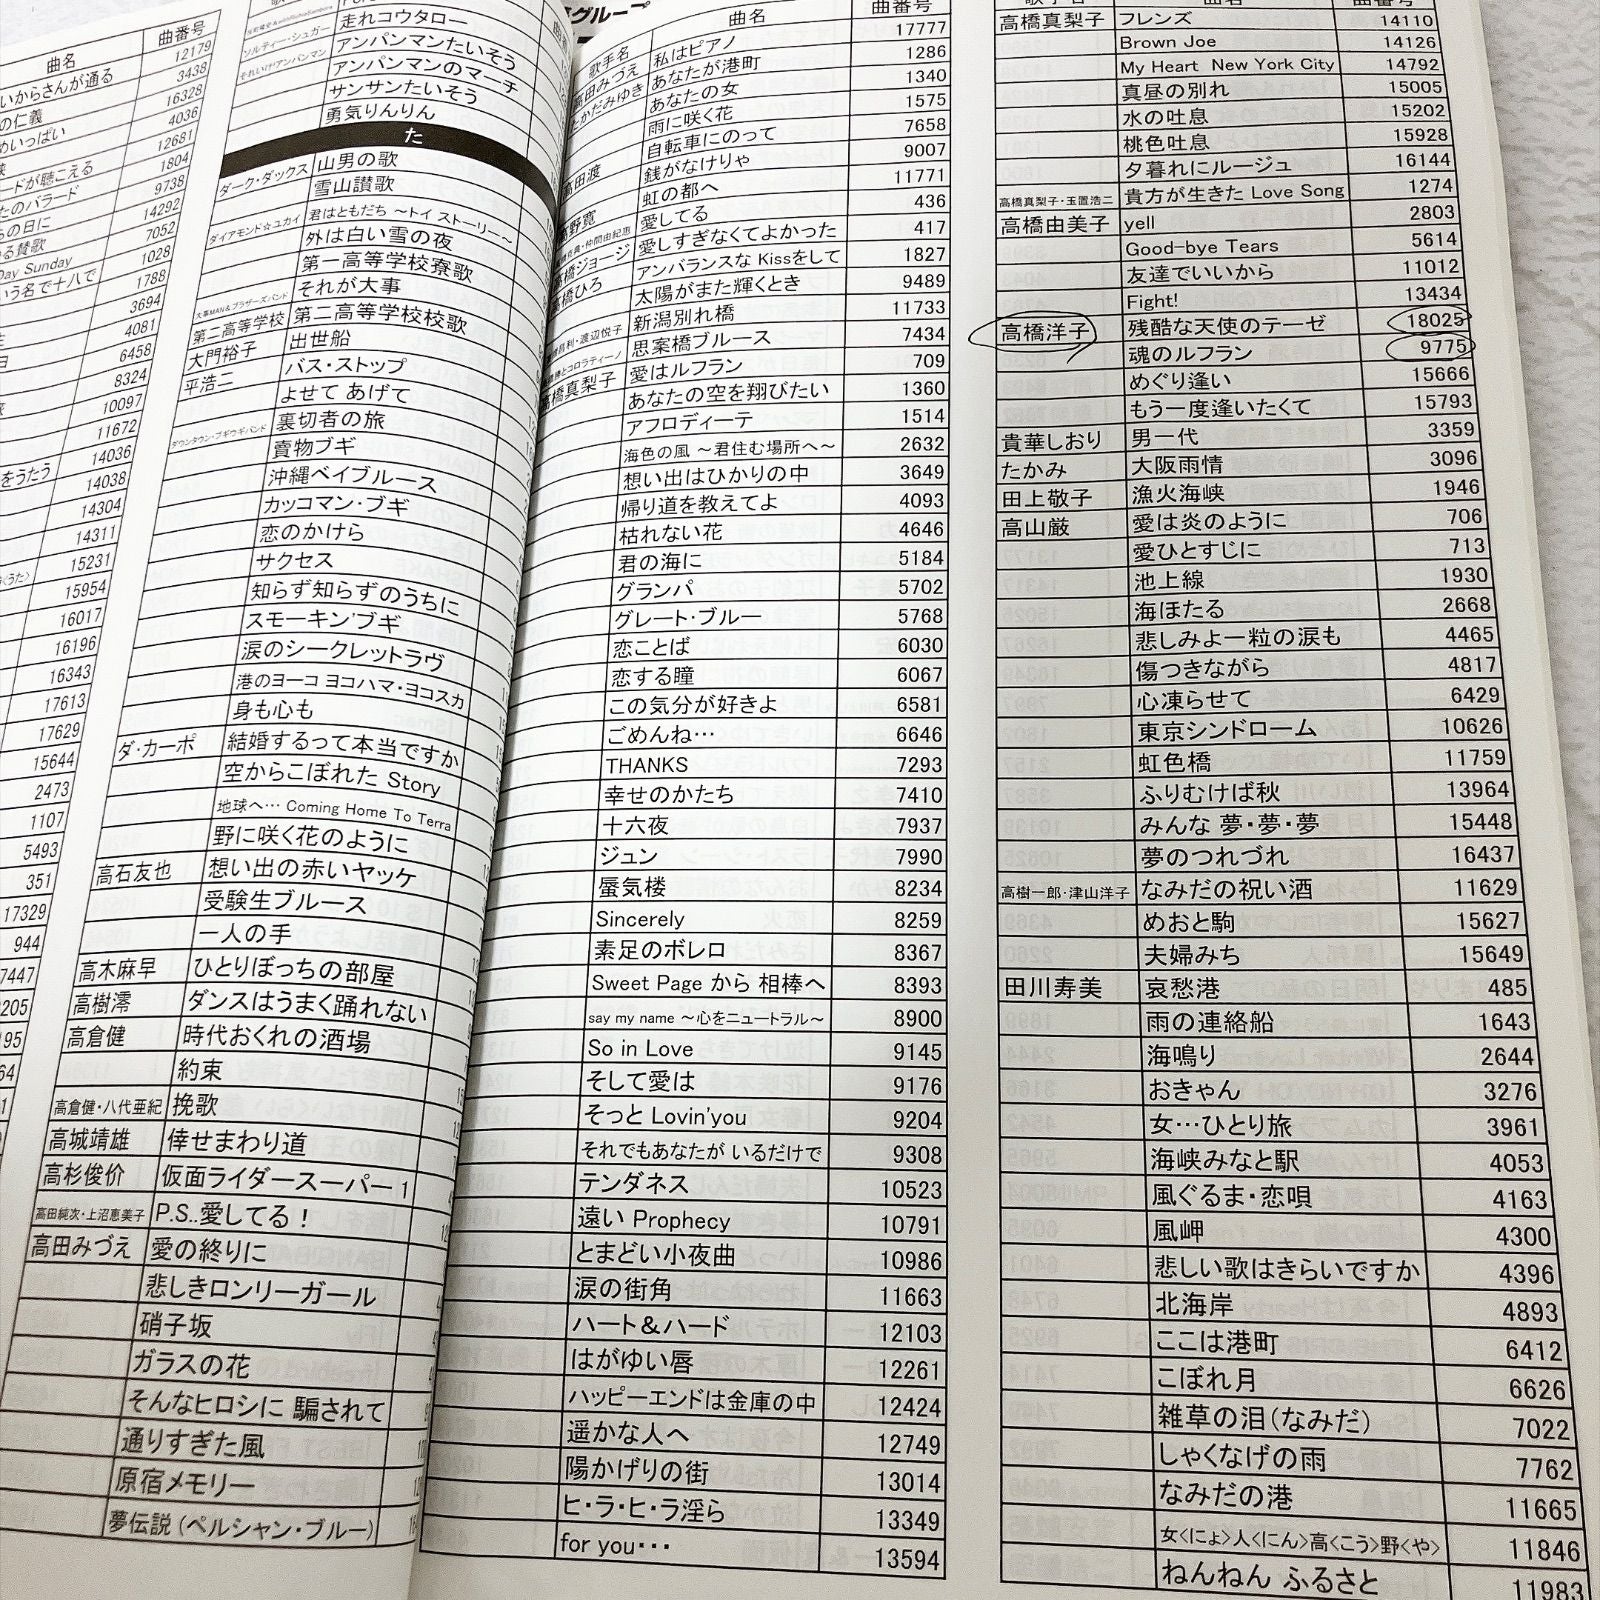 曲名 曲番号
いからさんが通る 12179
の仁義 3438
めいっぱい 16328
4036
ードが聴こえる 12681
たのバラード 1804
らの日に 9738
る賛歌 14292
Day Sunday 7052
いう名で十八で 1028
1788
3694
4081
6458
8324
10097
11672
をうたう 14036
14038
14304
14311
15231
15954
16017
16196
16343
17613
17629
15644
2473
1107
5493
351
17329
944
7447
205
195
64
走れコウタロー
ソルティー・シュガー
それいけ!アンパンマン アンパンマンたいそう
アンパンマンのマーチ
サンサンたいそう
勇気りんりん
た
ダーク・ダックス 山男の歌
雪山讃歌
ダイアモンド☆ユカイ 君はともだち ～トイ ストーリー～
外は白い雪の夜
第一高等学校寮歌
大事MAN&ブラザーズバンド それが大事
第二高等学校 第二高等学校校歌
大門裕子 出世船
平浩二 バス・ストップ
よせて あげて
ダウンタウン・ブギウギバンド 裏切者の旅
賣物ブギ
沖縄ベイブルース
カッコマン・ブギ
恋のかけら
サクセス
知らず知らずのうちに
スモーキン'ブギ
涙のシークレットラヴ
港のヨーコ ヨコハマ・ヨコスカ
身も心も
ダ・カーポ 結婚するって本当ですか
空からこぼれた Story
地球へ… Coming Home To Terra
野に咲く花のように
高石友也 想い出の赤いヤッケ
受験生ブルース
一人の手
高木麻早 ひとりぼっちの部屋
高樹澪 ダンスはうまく踊れない
高倉健 時代おくれの酒場
約束
高倉健・八代亜紀 挽歌
高城靖雄 倖せまわり道
高杉俊价 仮面ライダースーパー1
高田純次・上沼恵美子 P.S..愛してる！
高田みづえ 愛の終りに
悲しきロンリーガール
硝子坂
ガラスの花
そんなヒロシに 騙されて
通りすぎた風
原宿メモリー
夢伝説(ペルシャン・ブルー)
グループ
歌手名 曲名 曲番号
高田みづえ 私はピアノ 17777
たかだみゆき あなたが港町 1286
あなたの女 1340
雨に咲く花 1575
高田渡 自転車にのって 7658
銭がなけりゃ 9007
高野寛 虹の都へ 11771
愛してる 436
高橋ジョージ 愛しすぎなくてよかった 417
高橋ひろ アンバランスな Kissをして 1827
太陽がまた輝くとき 9489
新潟別れ橋 11733
思案橋ブルース 7434
高橋真梨子 愛はルフラン 709
あなたの空を翔びたい 1360
アフロディーテ 1514
海色の風 ～君住む場所へ～ 2632
想い出はひかりの中 3649
帰り道を教えてよ 4093
枯れない花 4646
君の海に 5184
グランパ 5702
グレート・ブルー 5768
恋ことば 6030
恋する瞳 6067
この気分が好きよ 6581
ごめんね… 6646
THANKS 7293
幸せのかたち 7410
十六夜 7937
ジュン 7990
蜃気楼 8234
Sincerely 8259
素足のボレロ 8367
Sweet Page から 相棒へ 8393
say my name ～心をニュートラル～ 8900
So in Love 9145
そして愛は 9176
そっと Lovin'you 9204
それでもあなたが いるだけで 9308
テンダネス 10523
遠い Prophecy 10791
とまどい小夜曲 10986
涙の街角 11663
ハート＆ハード 12103
はがゆい唇 12261
ハッピーエンドは金庫の中 12424
遥かな人へ 12749
陽かげりの街 13014
ヒ・ラ・ヒ・ラ淫ら 13349
for you・・・ 13594
歌手名 曲名 曲番号
高橋真梨子 フレンズ 14110
Brown Joe 14126
My Heart New York City 14792
真昼の別れ 15005
水の吐息 15202
桃色吐息 15928
夕暮れにルージュ 16144
高橋真梨子・玉置浩二 貴方が生きた Love Song 1274
高橋由美子 yell 2803
Good-bye Tears 5614
友達でいいから 11012
Fight! 13434
高橋洋子 残酷な天使のテーゼ 18025
魂のルフラン 9775
めぐり逢い 15666
もう一度逢いたくて 15793
貴華しおり 男一代 3359
たかみ 大阪雨情 3096
田上敬子 漁火海峡 1946
高山厳 愛は炎のように 706
愛ひとすじに 713
池上線 1930
海ほたる 2668
悲しみよ一粒の涙も 4465
傷つきながら 4817
心凍らせて 6429
東京シンドローム 10626
虹色橋 11759
ふりむけば秋 13964
みんな 夢・夢・夢 15448
夢のつれづれ 16437
高樹一郎・津山洋子 なみだの祝い酒 11629
めおと駒 15627
夫婦みち 15649
田川寿美 哀愁港 485
雨の連絡船 1643
海鳴り 2644
おきゃん 3276
女…ひとり旅 3961
海峡みなと駅 4053
風ぐるま・恋唄 4163
風岬 4300
悲しい歌はきらいですか 4396
北海岸 4893
ここは港町 6412
こぼれ月 6626
雑草の泪(なみだ) 7022
しゃくなげの雨 7762
なみだの港 11665
女<にょ>人<にん>高<こう>野<や> 11846
ねんねん ふるさと 11983